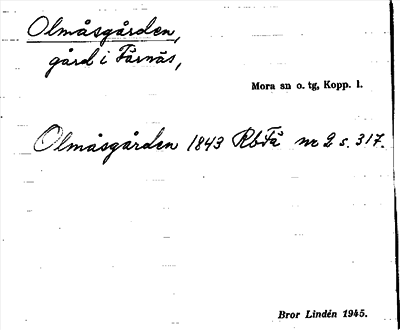 Olmåsgården,
gård i Färnäs,
Mora sn o. tg, Kopp. l.
Olmåsgården 1843 RbFä nr 2 s. 317.
Bror Lindén 1945.